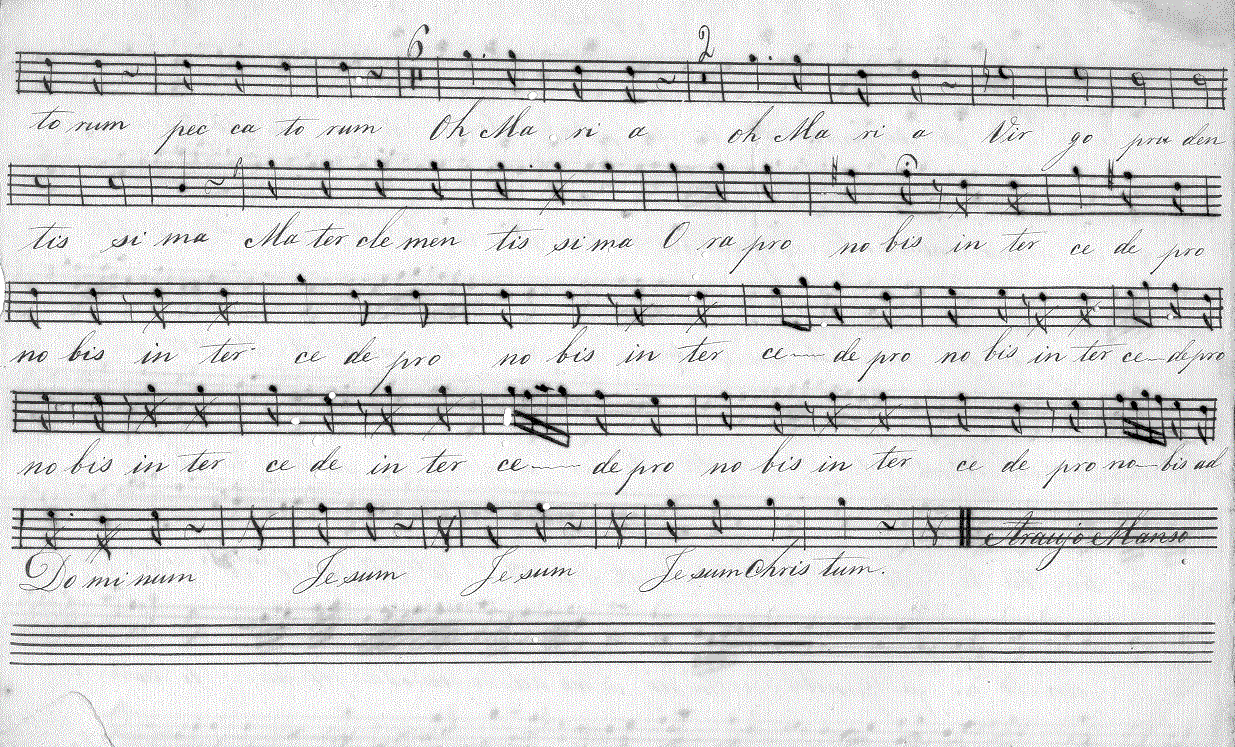 6 2
to rum pec ca to rum Oh Ma ri a oh Ma ri a Vir go pru den
tis si ma Ma ter cle men tis si ma O ra pro no bis in ter ce de pro
no bis in ter ce de pro no bis in ter ce de pro no bis in ter ce de pro
no bis in ter ce de in ter ce de pro no bis in ter ce de pro no bis ad
Araujo Manso
Do mi num Je sum Je sum Je sum Chris tum.